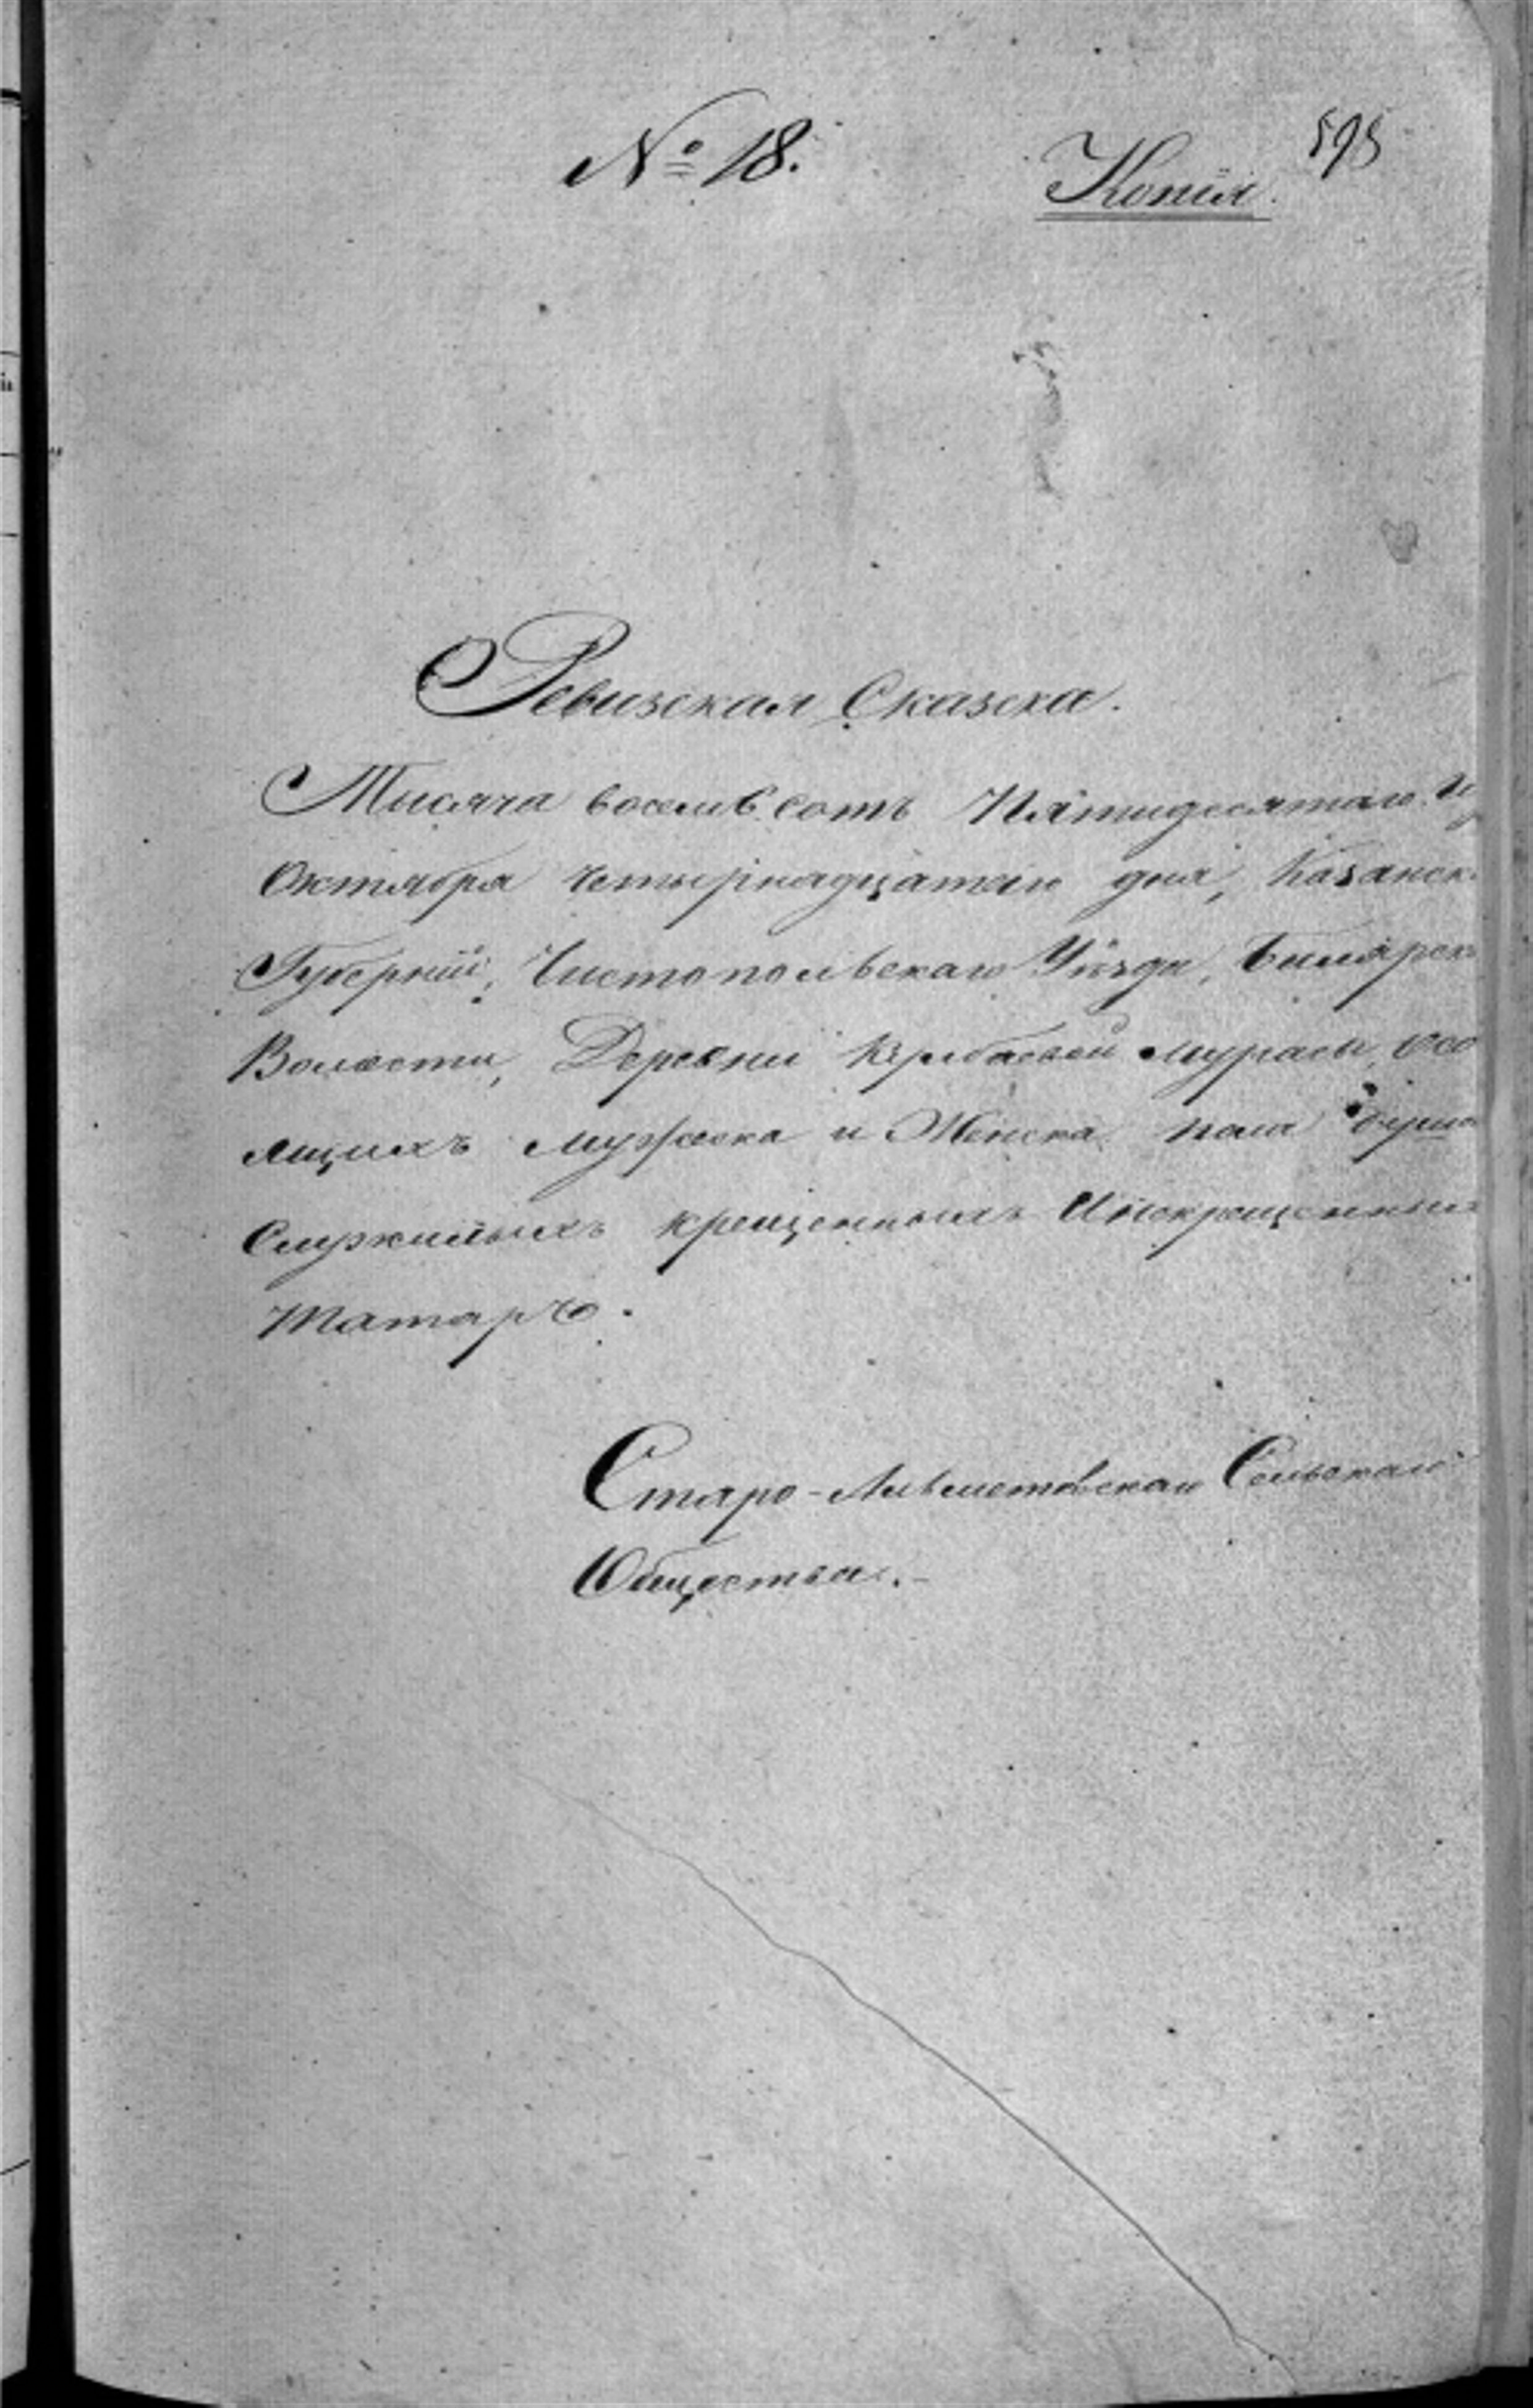 № 18.
Копія.
595
Ревизская Сказка.
Тысяча восемьсотъ Пятидесятаго
Октября четырнадцатаго дня, Казанск
Губерніи, Чистопольскаго Уѣзда, Билярск
Волости, Деревни Кульбаевой Мурасы, о со
ящихъ мужеска и Женска пола душ
Служилыхъ крещенныхъ и некрещенных
Татаръ.
Старо-Альметовскаго Сельскаго
Общества.-